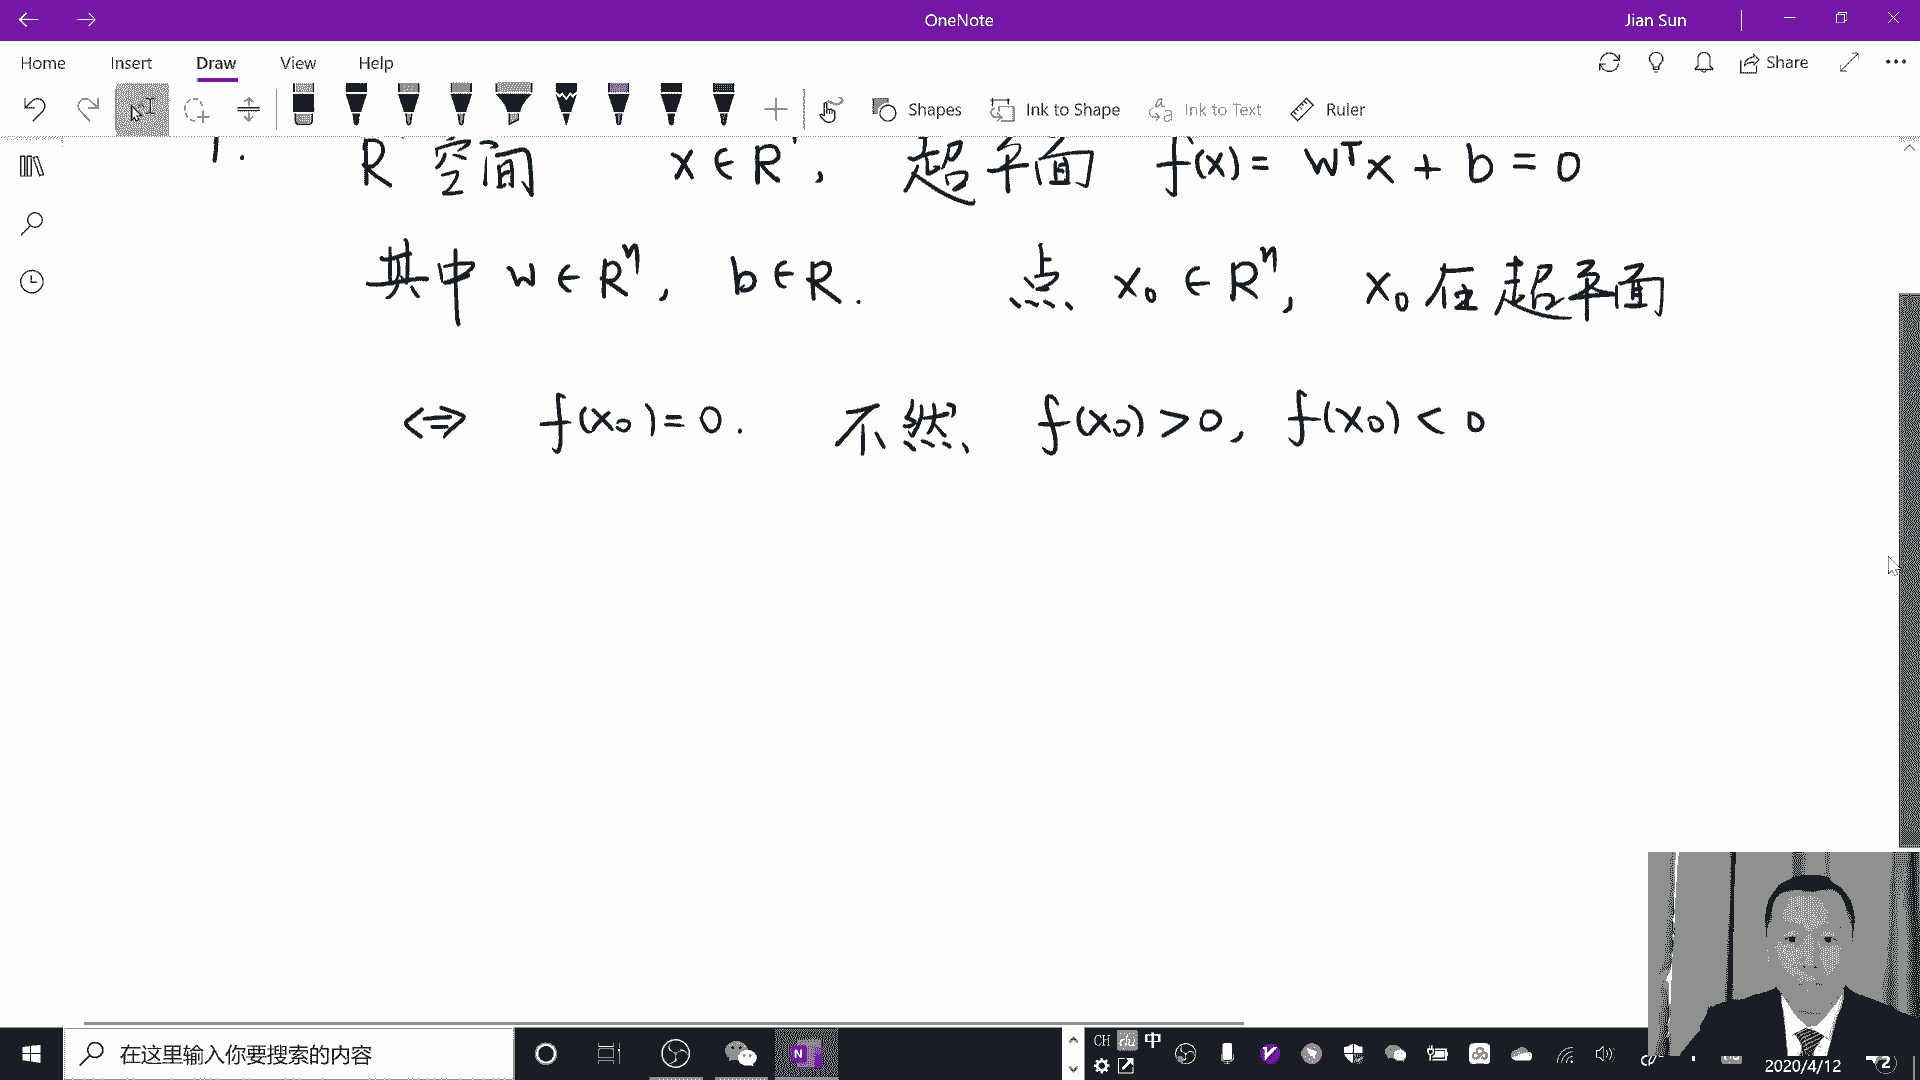 OneNote
Jian Sun
Home Insert Draw View Help
Share
Shapes Ink to Shape Ink to Text Ruler
1. R 空间 x ∈ R , 超平面 f(x) = wᵀx + b = 0
其中 w ∈ Rⁿ, b ∈ R. 点 x₀ ∈ Rⁿ, x₀ 在超平面
⇔ f(x₀) = 0. 不然、 f(x₀) > 0, f(x₀) < 0
在这里输入你要搜索的内容
CH 中
2020/4/12
2